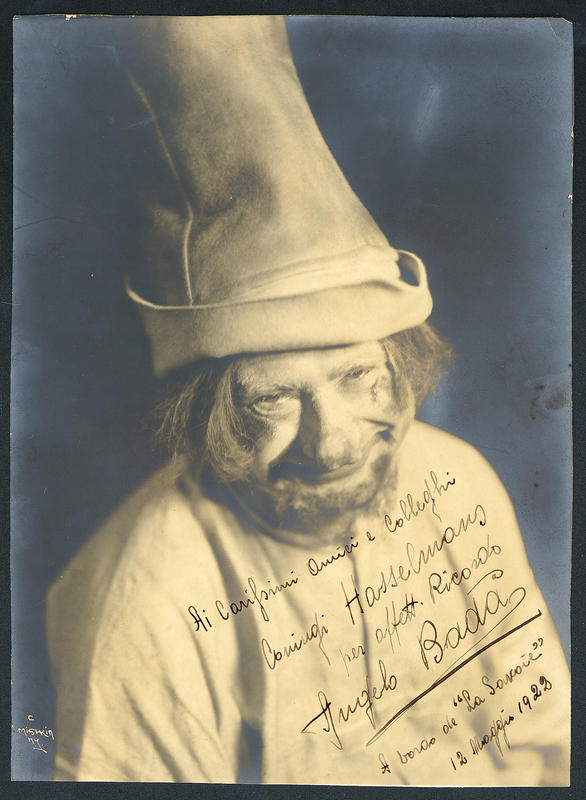 Ai Carissimi Amici e Colleghi
Coniugi Hasselmans
per affett. Ricordo
Angelo Badà
A bordo de "La Savoie"
12 Maggio 1922
C
MISHKIN
NY